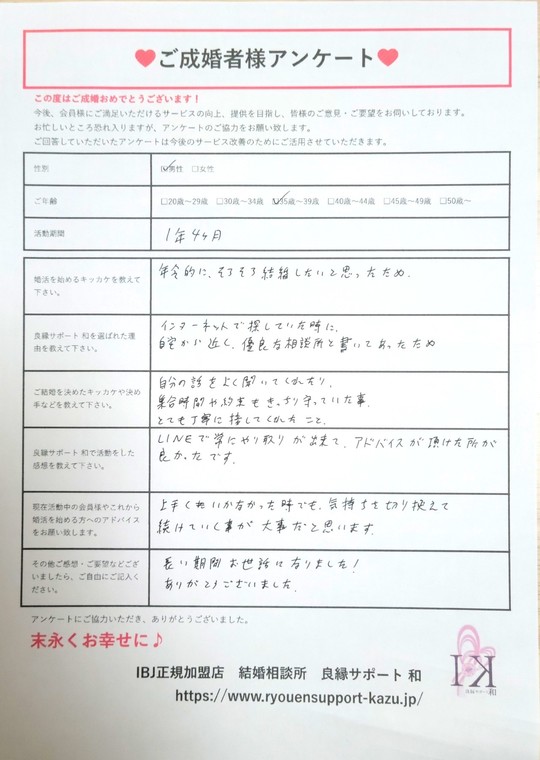 ♥ご成婚者様アンケート♥
この度はご成婚おめでとうございます！
今後、会員様にご満足いただけるサービスの向上、提供を目指し、皆様のご意見・ご要望をお伺いしております。
お忙しいところ恐れ入りますが、アンケートのご協力をお願い致します。
ご回答していただいたアンケートは今後のサービス改善のためにご活用させていただきます。
性別
☑男性 □女性
ご年齢
□20歳～29歳 □30歳～34歳 ☑35歳～39歳 □40歳～44歳 □45歳～49歳 □50歳～
活動期間
1年4ヶ月
婚活を始めるキッカケを教えて
下さい。
年令的に、そろそろ結婚したいと思ったため。
良縁サポート 和を選ばれた理
由を教えて下さい。
インターネットで探していた時に、
自宅から近く、優良な相談所と書いてあったため
ご結婚を決めたキッカケや決め
手などを教えて下さい。
自分の話をよく聞いてくれたり、
集合時間や約束もきっちり守っていた事。
とても丁寧に接してくれたこと。
良縁サポート 和で活動をした
感想を教えて下さい。
LINEで常にやり取りが出来て、アドバイスが頂けた所が
良かったです。
現在活動中の会員様やこれから
婚活を始める方へのアドバイス
をお願い致します。
上手くいかなかった時でも、気持ちを切り換えて
続けていく事が大事だと思います。
その他ご感想・ご要望などござ
いましたら、ご自由にご記入く
ださい。
長い期間お世話になりました！
ありがとうございました。
アンケートにご協力いただき、ありがとうございました。
末永くお幸せに♪
IBJ正規加盟店 結婚相談所 良縁サポート 和
https://www.ryouensupport-kazu.jp/
良縁サポート和